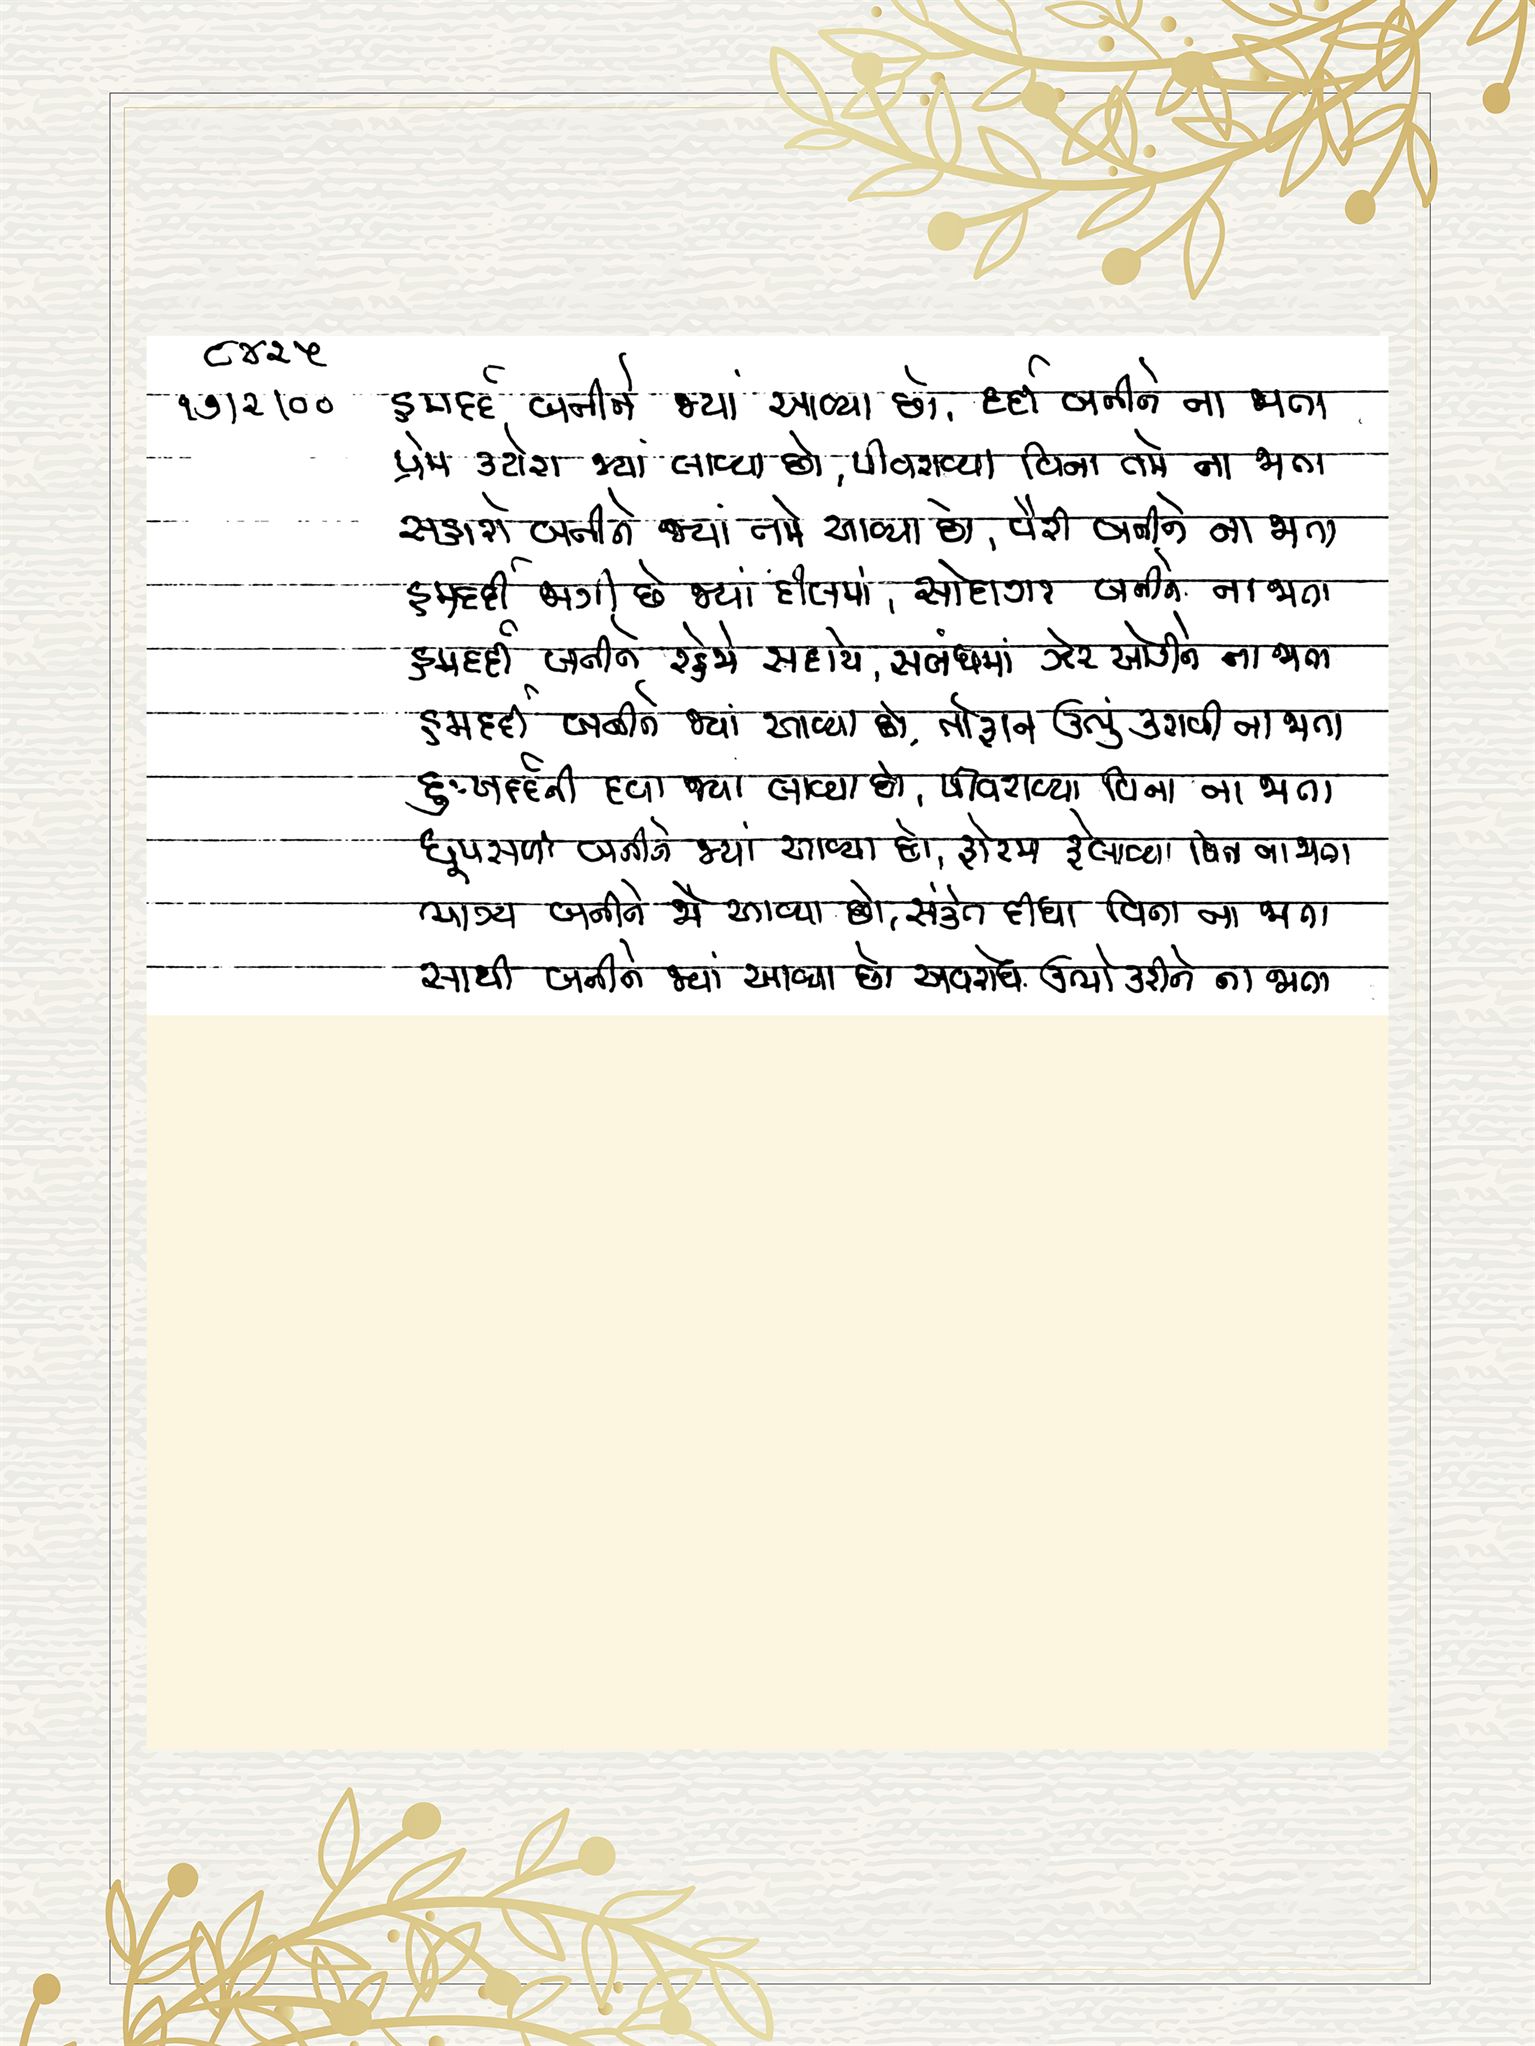 ૮૪૨૫
૧૭/૨/૦૦ હમદર્દ બનીને જ્યાં આવ્યા છો, દર્દી બનીને ના જાતા
પ્રેમ કટોરા જ્યાં લાવ્યા છો, પીવરાવ્યા વિના તમે ના જાતા
સહારો બનીને જ્યાં તમે આવ્યા છો, વૈરી બનીને ના જાતા
હમદર્દી જાગી છે જ્યાં દીલમાં, સોદાગર બનીને ના જાતા
હમદર્દી બનીને રહેજે સદાય, સબંધમાં ઝેર ઓકીને ના જાતા
હમદર્દી બનીને જ્યાં આવ્યા છો, તોફાન ઉભું કરાવી ના જાતા
દુઃખદર્દની દવા જ્યાં લાવ્યા છો, પીવરાવ્યા વિના ના જાતા
ધૂપસળી બનીને જ્યાં આવ્યા છો, ફોરમ ફેલાવ્યા વિના ના જાતા
ભાગ્ય બનીને જો આવ્યા છો, સંકેત દીધા વિના ના જાતા
સાથી બનીને જ્યાં આવ્યા છો અવરોધ ઉભો કરીને ના જાતા